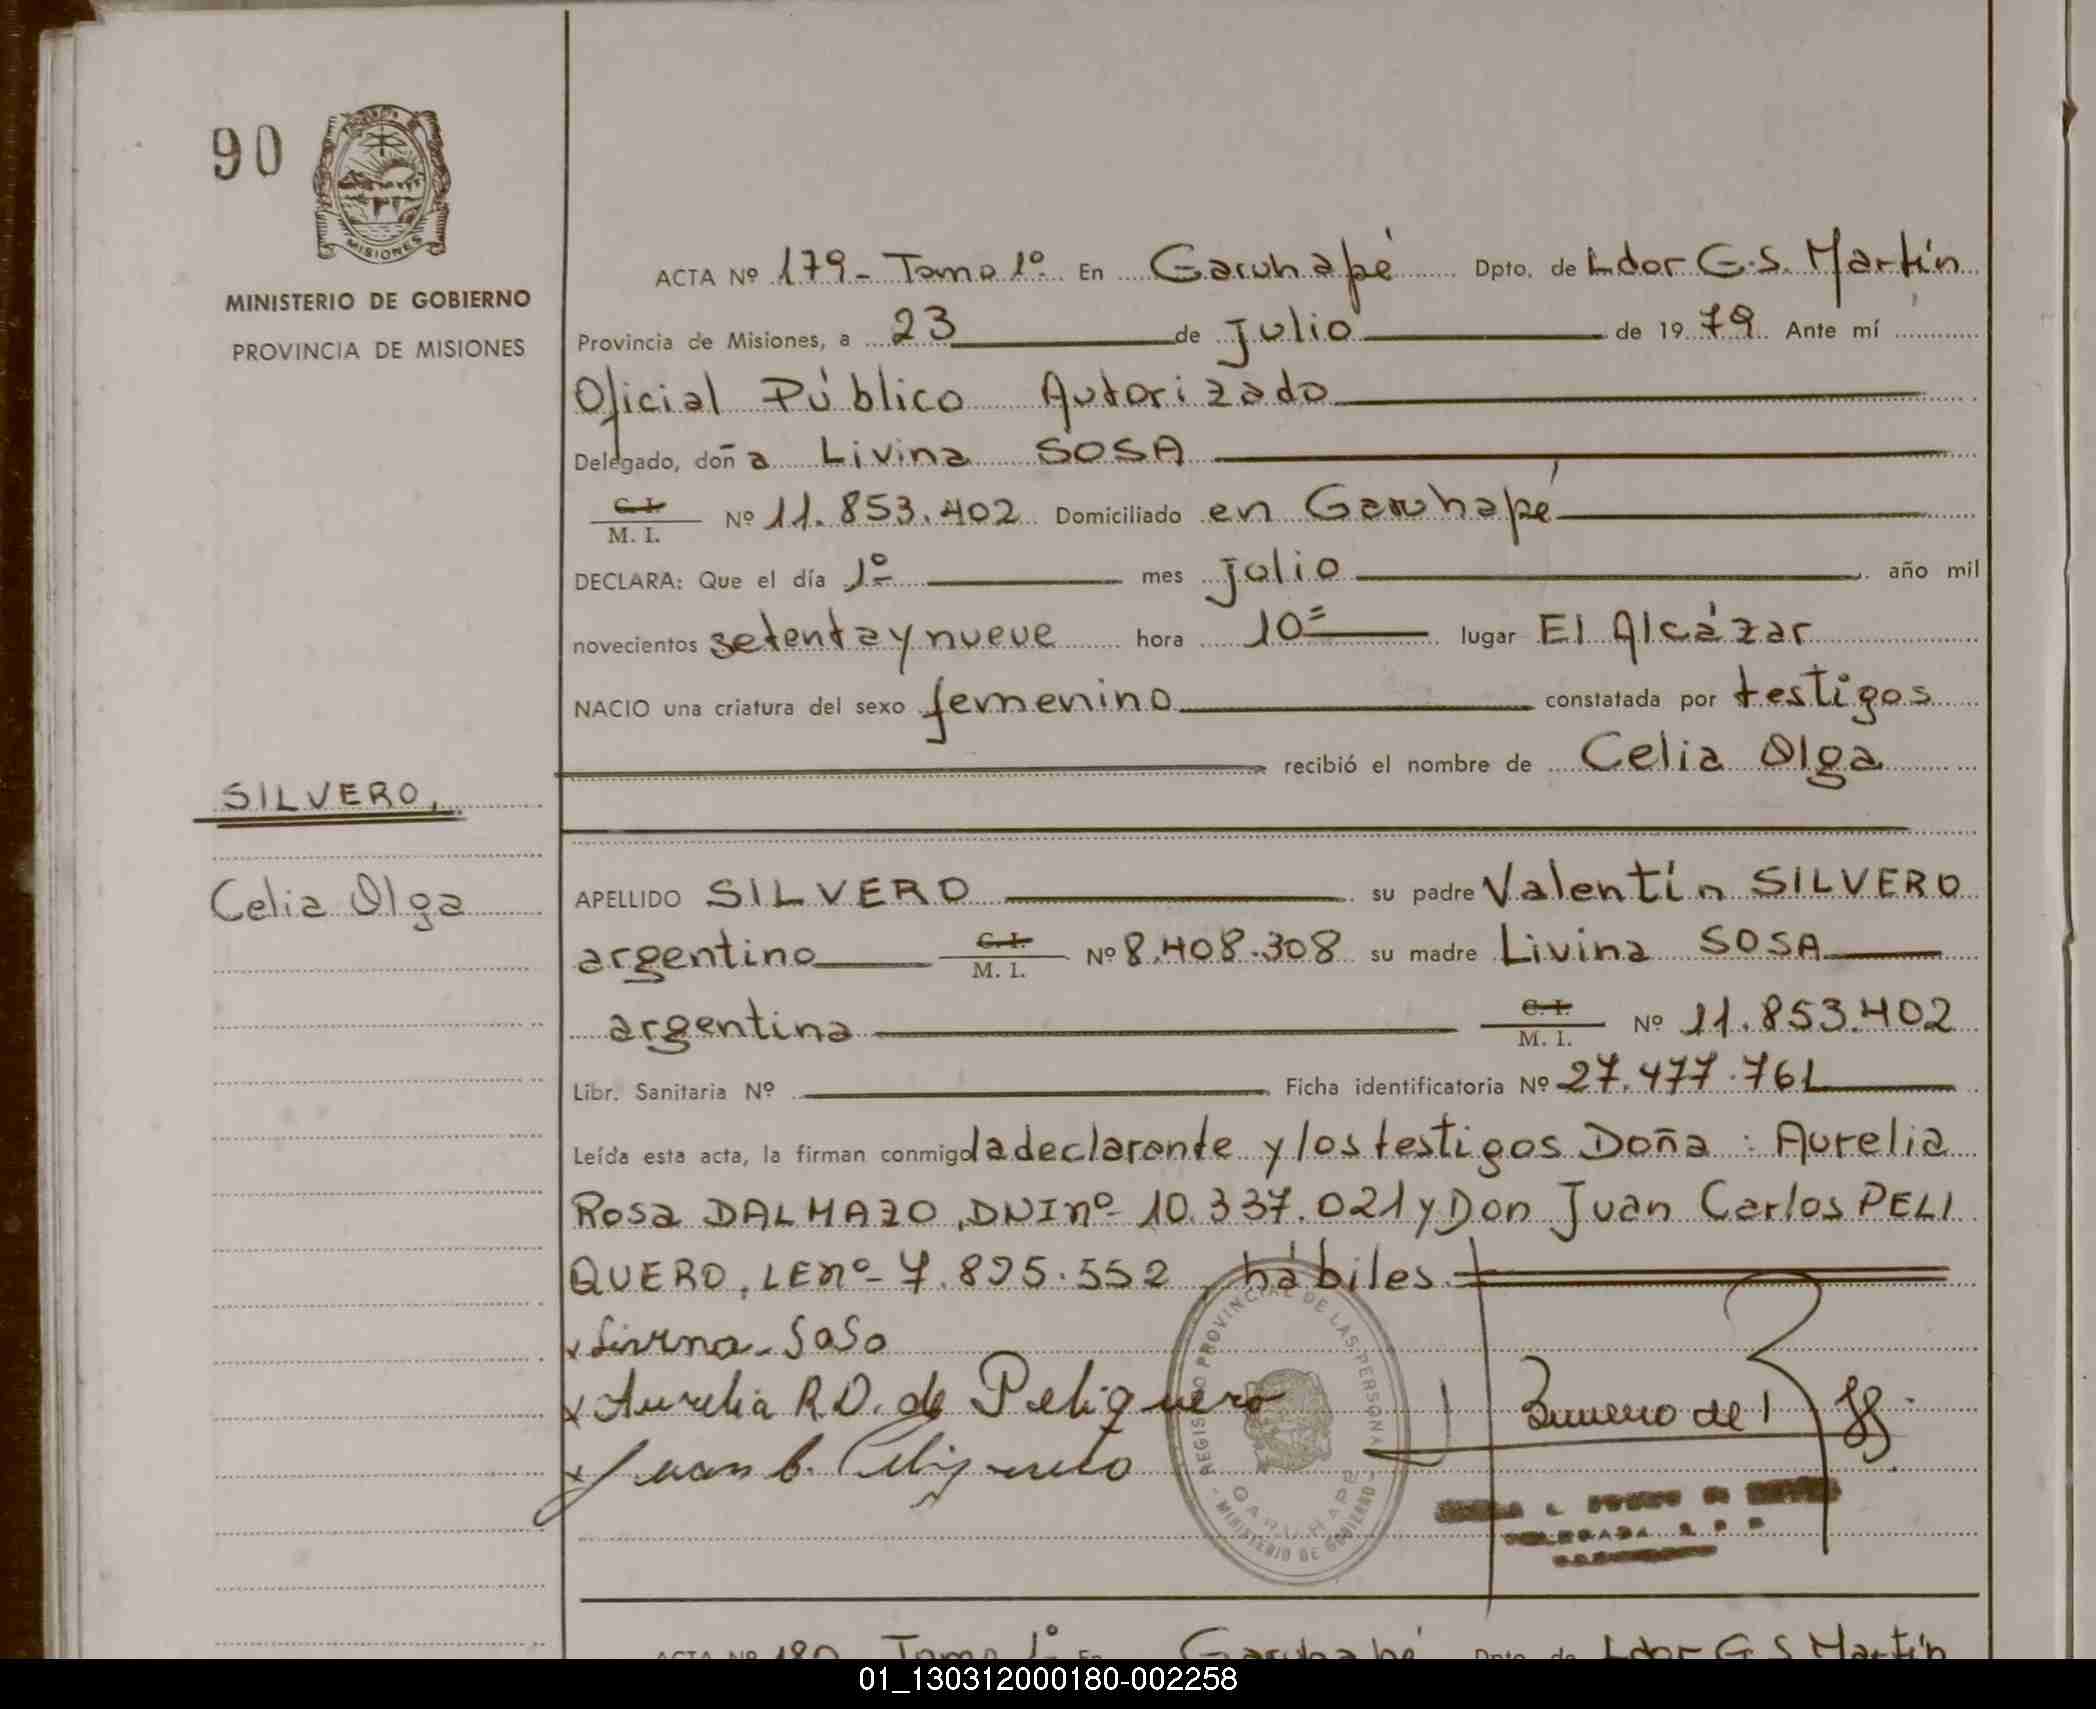 90
MISIONES
MINISTERIO DE GOBIERNO
PROVINCIA DE MISIONES
ACTA Nº 179- Tomo 1º En Garuhapé Dpto. de Ldor G.S. Martín
Provincia de Misiones, a 23 de julio de 1979. Ante mí
Oficial Público Autorizado
Delegado, doña Livina SOSA
C. I.
M. I. Nº 11.853.402 Domiciliado en Garuhapé
DECLARA: Que el día 1º mes julio año mil
novecientos setenta y nueve hora 10= lugar El Alcázar
NACIO una criatura del sexo femenino constatada por testigos
recibió el nombre de Celia Olga
SILVERO,
Celia Olga
APELLIDO SILVERO su padre Valentín SILVERO
argentino C. I. M. I. Nº 8.408.308 su madre Livina SOSA
argentina C. I. M. I. Nº 11.853.402
Libr. Sanitaria Nº Ficha identificatoria Nº 27.477.761
Leída esta acta, la firman conmigo la declarante y los testigos Doña: Aurelia
Rosa DALMAZO, DNI nº- 10.337.021 y Don Juan Carlos PELI
QUERO, LE nº- 7.895.552, hábiles
x Livina Sosa
x Aurelia R.D. de Peliquero
x Juan C. Peliquero
REGISTRO PROVINCIAL DE LAS PERSONAS
GARUHAPE
- MINISTERIO DE GOBIERNO -
ACTA Nº 180 Tomo 1º En Garuhapé Dpto. de Ldor G.S. Martín
01_130312000180-002258